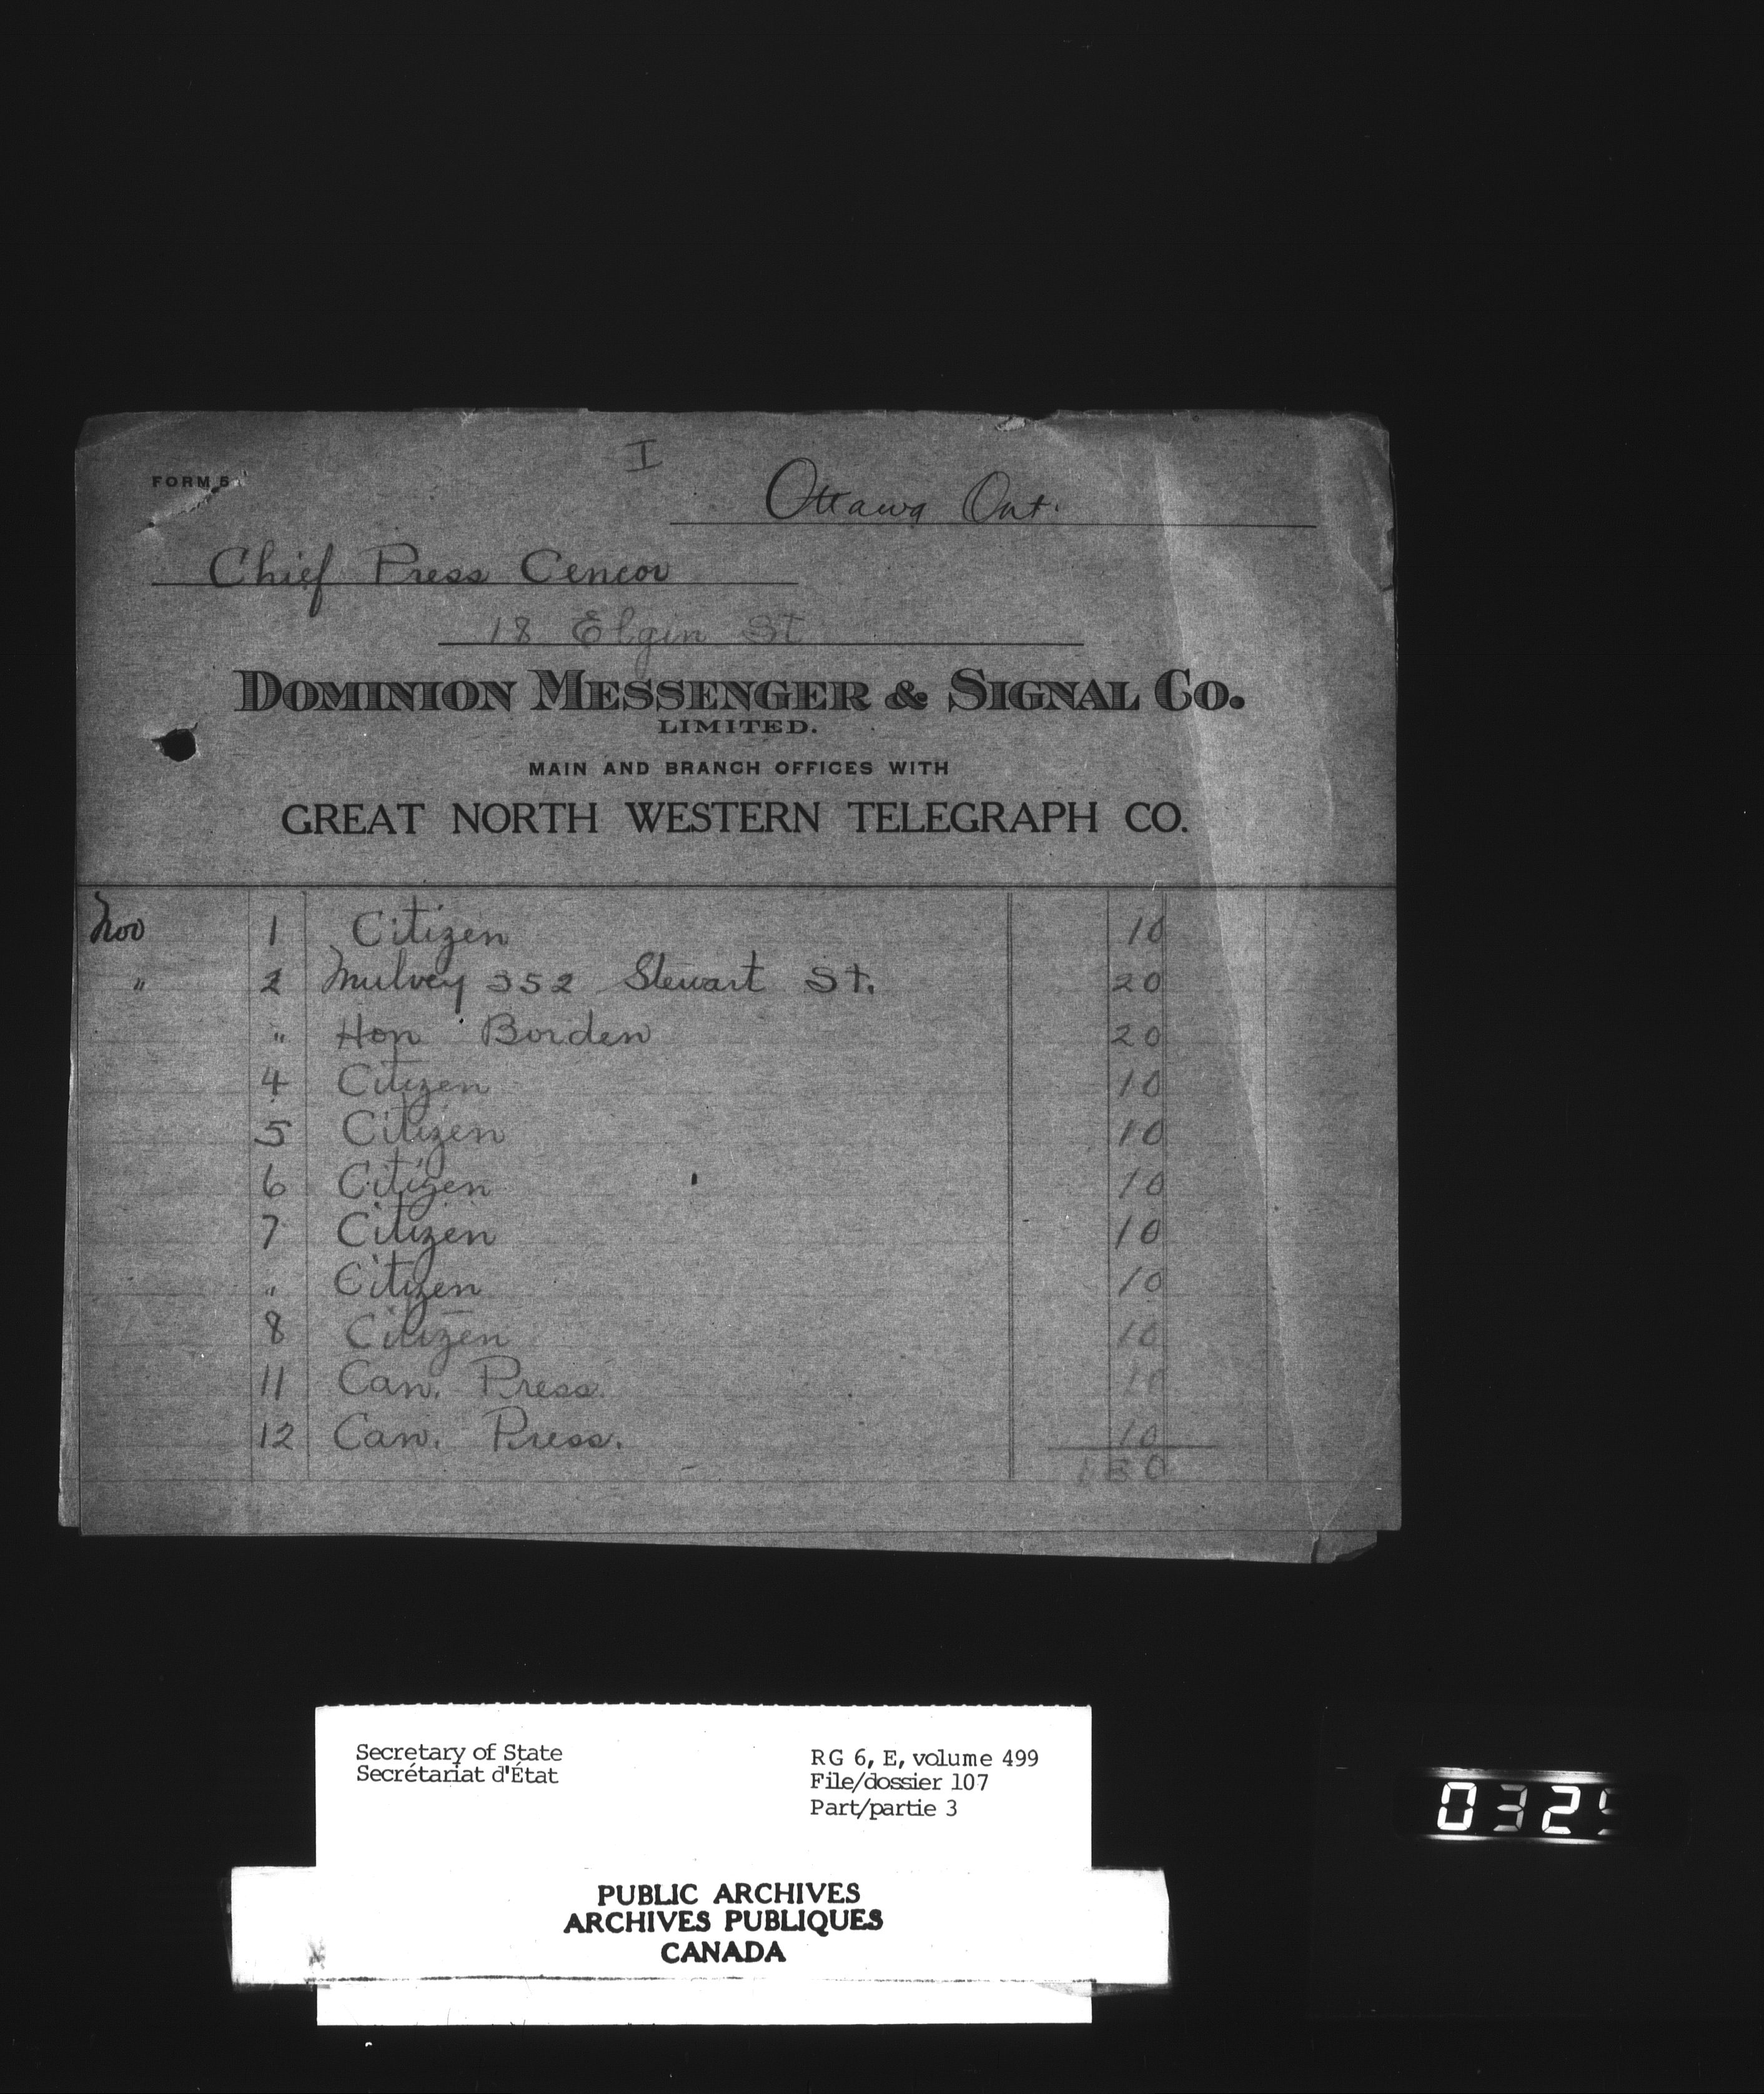 I
FORM 5
Ottawa Ont.
Chief Press Cencor
18 Elgin St
DOMINION MESSENGER & SIGNAL CO.
LIMITED.
MAIN AND BRANCH OFFICES WITH
GREAT NORTH WESTERN TELEGRAPH CO.
Nov 1 Citizen 10
" 2 Mulvey 352 Stewart St. 20
" Hon Borden 20
4 Citizen 10
5 Citizen 10
6 Citizen 10
7 Citizen 10
" Citizen 10
8 Citizen 10
11 Can. Press 10
12 Can. Press. 10
130
Secretary of State
Secrétariat d'État
RG 6, E, volume 499
File/dossier 107
Part/partie 3
PUBLIC ARCHIVES
ARCHIVES PUBLIQUES
CANADA
032